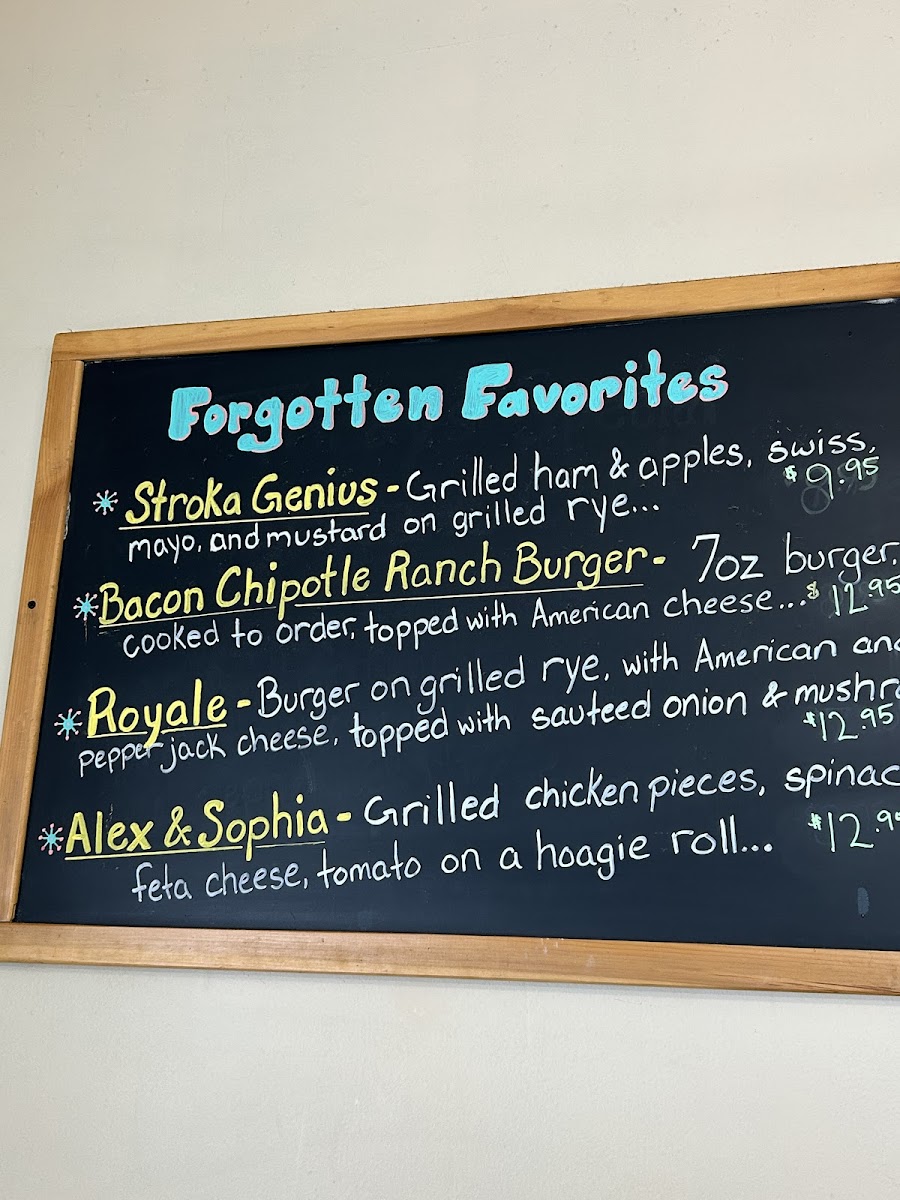 Forgotten Favorites
* Stroka Genius - Grilled ham & apples, swiss,
mayo, and mustard on grilled rye... $9.95
* Bacon Chipotle Ranch Burger - 7oz burger,
cooked to order, topped with American cheese... $12.95
* Royale - Burger on grilled rye, with American and
pepper jack cheese, topped with sauteed onion &
$12.95
* Alex & Sophia - Grilled chicken pieces,
feta cheese, tomato on a hoagie roll...